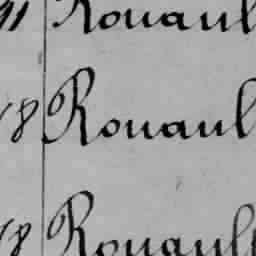 91 Rouaul
18 Rouaul
18 Rouaull